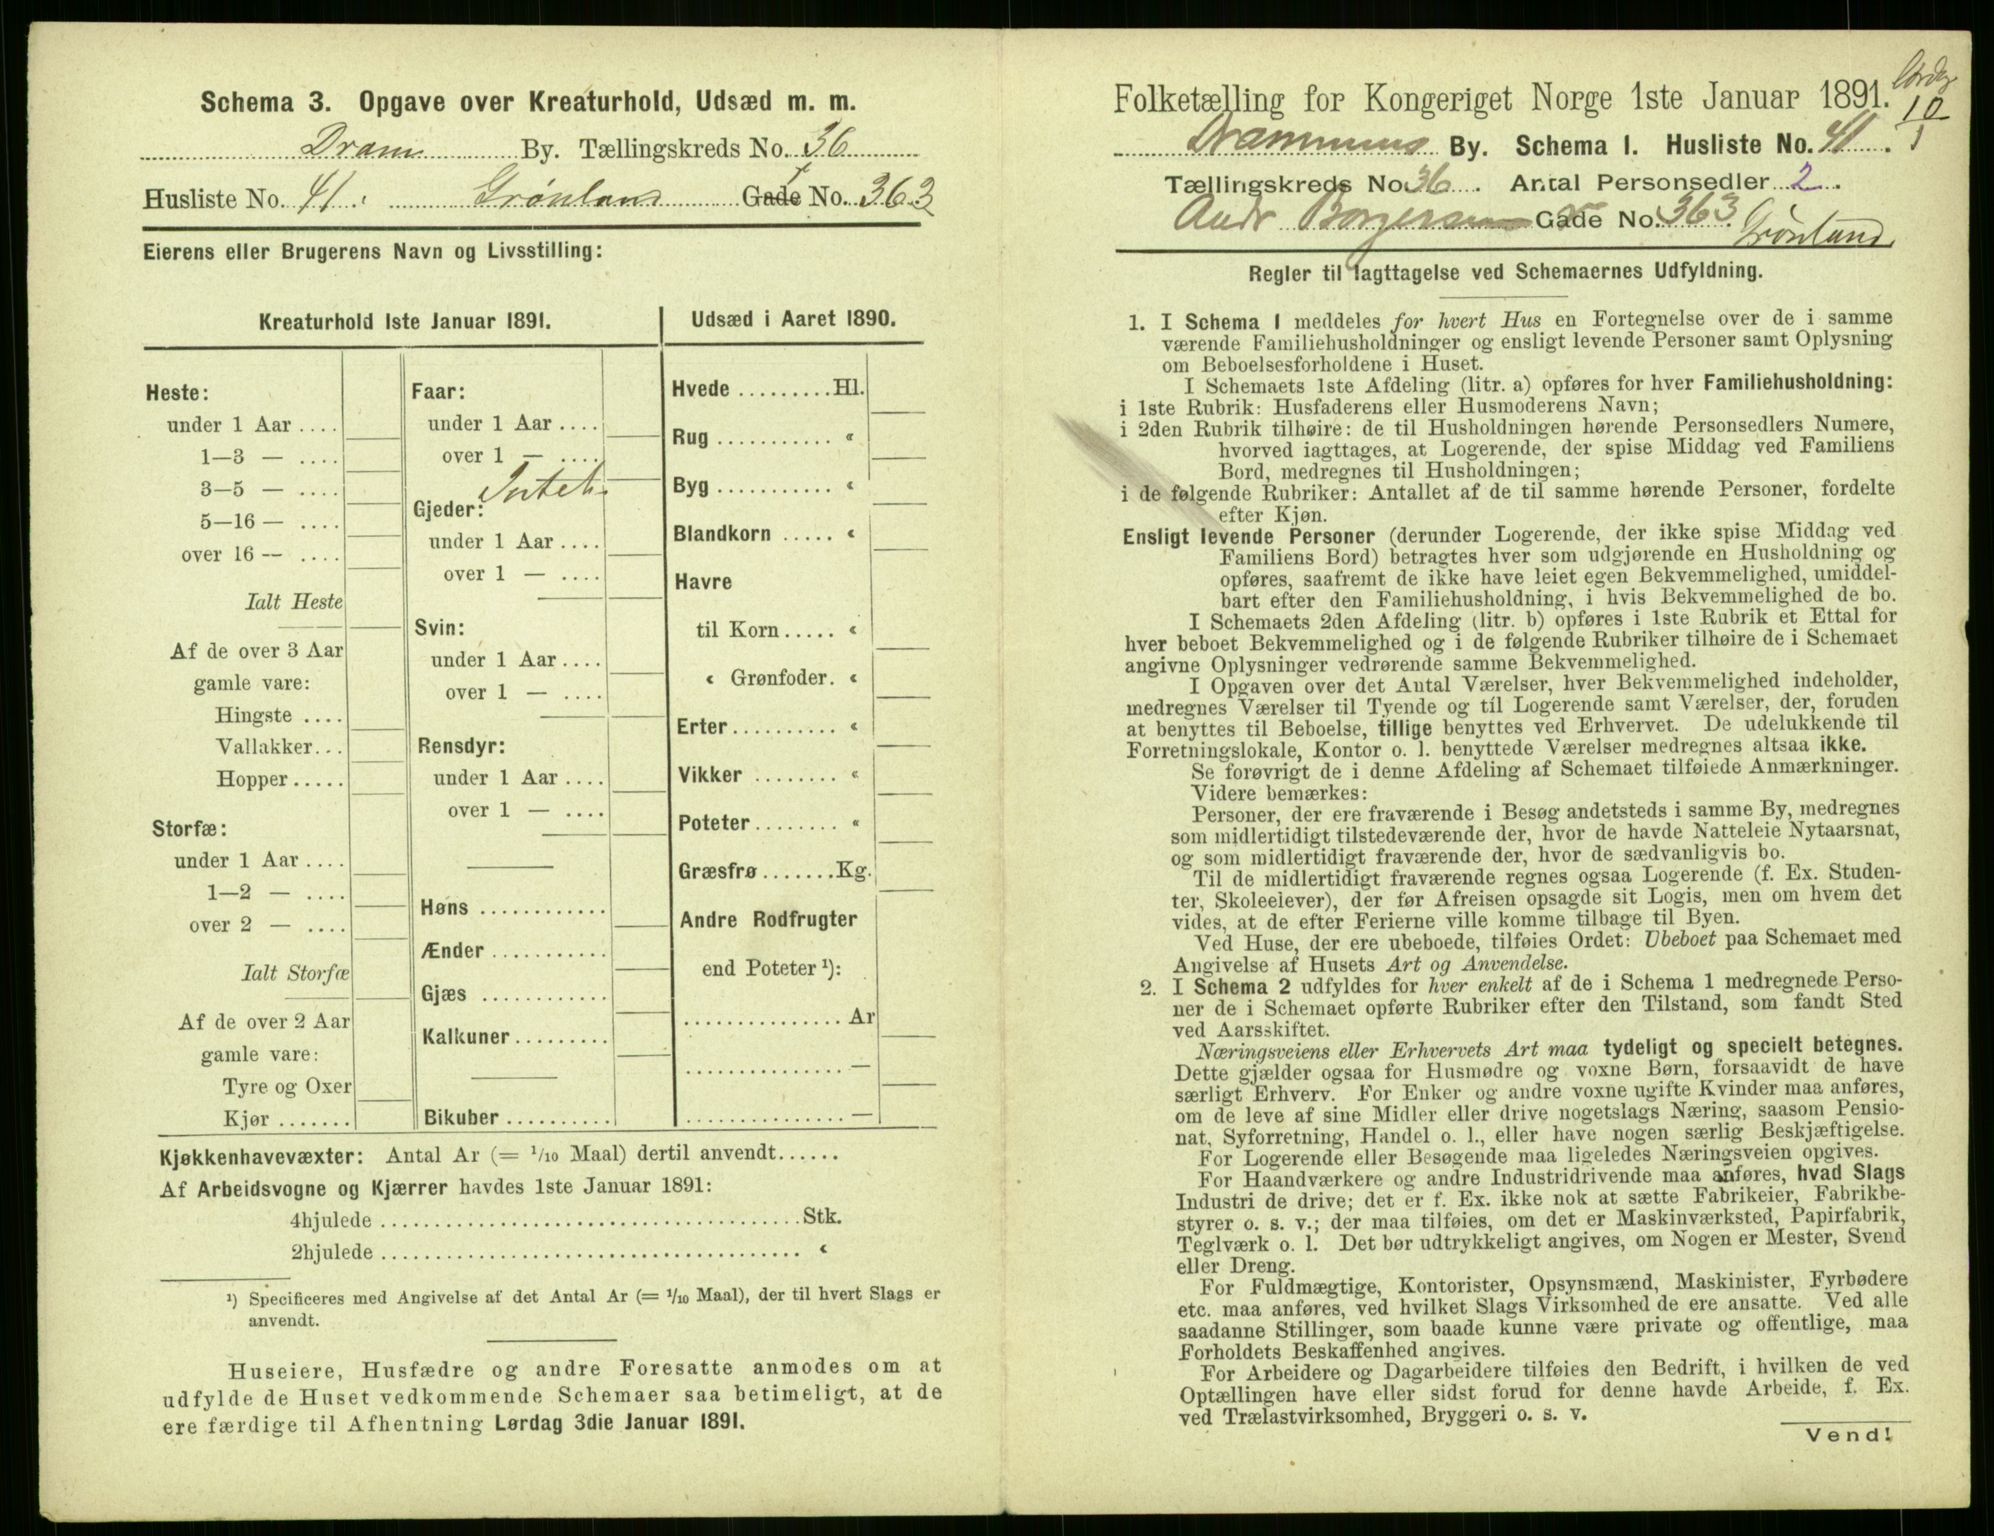 Schema 3. Opgave over Kreaturhold, Udsæd m. m.
Dram By. Tællingskreds No. 36
Husliste No. 41. Grønland Gade No. 363
Eierens eller Brugerens Navn og Livsstilling:
Kreaturhold 1ste Januar 1891.
Heste:
under 1 Aar ....
1—3 — ....
3-5 — ....
5—16 — ....
over 16 — ....
Ialt Heste
Af de over 3 Aar
gamle vare:
Hingste ....
Vallakker...
Hopper.....
Storfæ:
under 1 Aar ....
1—2 — ....
over 2 — ....
Ialt Storfæ
Af de over 2 Aar
gamle vare:
Tyre og Oxer
Kjør .......
Faar:
under 1 Aar ....
over 1 — ....
Intet
Gjeder:
under 1 Aar ....
over 1 — ....
Svin:
under 1 Aar ....
over 1 — ....
Rensdyr:
under 1 Aar ....
over 1 — ....
Høns ............
Ænder ...........
Gjæs ............
Kalkuner.........
Bikuber..........
Udsæd i Aaret 1890.
Hvede .........Hl.
Rug ........... «
Byg ........... «
Blandkorn ..... «
Havre
til Korn..... «
« Grønfoder. «
Erter.......... «
Vikker ........ «
Poteter........ «
Græsfrø.......Kg.
Andre Rodfrugter
end Poteter ¹):
............... Ar
............... —
............... —
Kjøkkenhavevæxter: Antal Ar (= 1/10 Maal) dertil anvendt......
Af Arbeidsvogne og Kjærrer havdes 1ste Januar 1891:
4hjulede .......................................Stk.
2hjulede ....................................... «
¹) Specificeres med Angivelse af det Antal Ar (= 1/10 Maal), der til hvert Slags er
anvendt.
Huseiere, Husfædre og andre Foresatte anmodes om at
udfylde de Huset vedkommende Schemaer saa betimeligt, at de
ere færdige til Afhentning Lørdag 3die Januar 1891.
Folketælling for Kongeriget Norge 1ste Januar 1891.
10/1
Drammens By. Schema I. Husliste No. 41.
Tællingskreds No. 36. Antal Personsedler 2.
Andr Borgersen Gade No. 363. Grønland
Regler til Iagttagelse ved Schemaernes Udfyldning.
1. I Schema I meddeles for hvert Hus en Fortegnelse over de i samme
værende Familiehusholdninger og ensligt levende Personer samt Oplysning
om Beboelsesforholdene i Huset.
I Schemaets 1ste Afdeling (litr. a) opføres for hver Familiehusholdning:
i 1ste Rubrik: Husfaderens eller Husmoderens Navn;
i 2den Rubrik tilhøire: de til Husholdningen hørende Personsedlers Numere,
hvorved iagttages, at Logerende, der spise Middag ved Familiens
Bord, medregnes til Husholdningen;
i de følgende Rubriker: Antallet af de til samme hørende Personer, fordelte
efter Kjøn.
Ensligt levende Personer (derunder Logerende, der ikke spise Middag ved
Familiens Bord) betragtes hver som udgjørende en Husholdning og
opføres, saafremt de ikke have leiet egen Bekvemmelighed, umiddel-
bart efter den Familiehusholdning, i hvis Bekvemmelighed de bo.
I Schemaets 2den Afdeling (litr. b) opføres i 1ste Rubrik et Ettal for
hver beboet Bekvemmelighed og i de følgende Rubriker tilhøire de i Schemaet
angivne Oplysninger vedrørende samme Bekvemmelighed.
I Opgaven over det Antal Værelser, hver Bekvemmelighed indeholder,
medregnes Værelser til Tyende og til Logerende samt Værelser, der, foruden
at benyttes til Beboelse, tillige benyttes ved Erhvervet. De udelukkende til
Forretningslokale, Kontor o. l. benyttede Værelser medregnes altsaa ikke.
Se forøvrigt de i denne Afdeling af Schemaet tilføiede Anmærkninger.
Videre bemærkes:
Personer, der ere fraværende i Besøg andetsteds i samme By, medregnes
som midlertidigt tilstedeværende der, hvor de havde Natteleie Nytaarsnat,
og som midlertidigt fraværende der, hvor de sædvanligvis bo.
Til de midlertidigt fraværende regnes ogsaa Logerende (f. Ex. Studen-
ter, Skoleelever), der før Afreisen opsagde sit Logis, men om hvem det
vides, at de efter Ferierne ville komme tilbage til Byen.
Ved Huse, der ere ubeboede, tilføies Ordet: Ubeboet paa Schemaet med
Angivelse af Husets Art og Anvendelse.
2. I Schema 2 udfyldes for hver enkelt af de i Schema 1 medregnede Perso-
ner de i Schemaet opførte Rubriker efter den Tilstand, som fandt Sted
ved Aarsskiftet.
Næringsveiens eller Erhvervets Art maa tydeligt og specielt betegnes.
Dette gjælder ogsaa for Husmødre og voxne Børn, forsaavidt de have
særligt Erhverv. For Enker og andre voxne ugifte Kvinder maa anføres,
om de leve af sine Midler eller drive nogetslags Næring, saasom Pensio-
nat, Syforretning, Handel o. l., eller have nogen særlig Beskjæftigelse.
For Logerende eller Besøgende maa ligeledes Næringsveien opgives.
For Haandværkere og andre Industridrivende maa anføres, hvad Slags
Industri de drive; det er f. Ex. ikke nok at sætte Fabrikeier, Fabrikbe-
styrer o. s. v.; der maa tilføies, om det er Maskinværksted, Papirfabrik,
Teglværk o. l. Det bør udtrykkeligt angives, om Nogen er Mester, Svend
eller Dreng.
For Fuldmægtige, Kontorister, Opsynsmænd, Maskinister, Fyrbødere
etc. maa anføres, ved hvilket Slags Virksomhed de ere ansatte. Ved alle
saadanne Stillinger, som baade kunne være private og offentlige, maa
Forholdets Beskaffenhed angives.
For Arbeidere og Dagarbeidere tilføies den Bedrift, i hvilken de ved
Optællingen have eller sidst forud for denne havde Arbeide, f. Ex.
ved Trælastvirksomhed, Bryggeri o. s. v.
Vend!